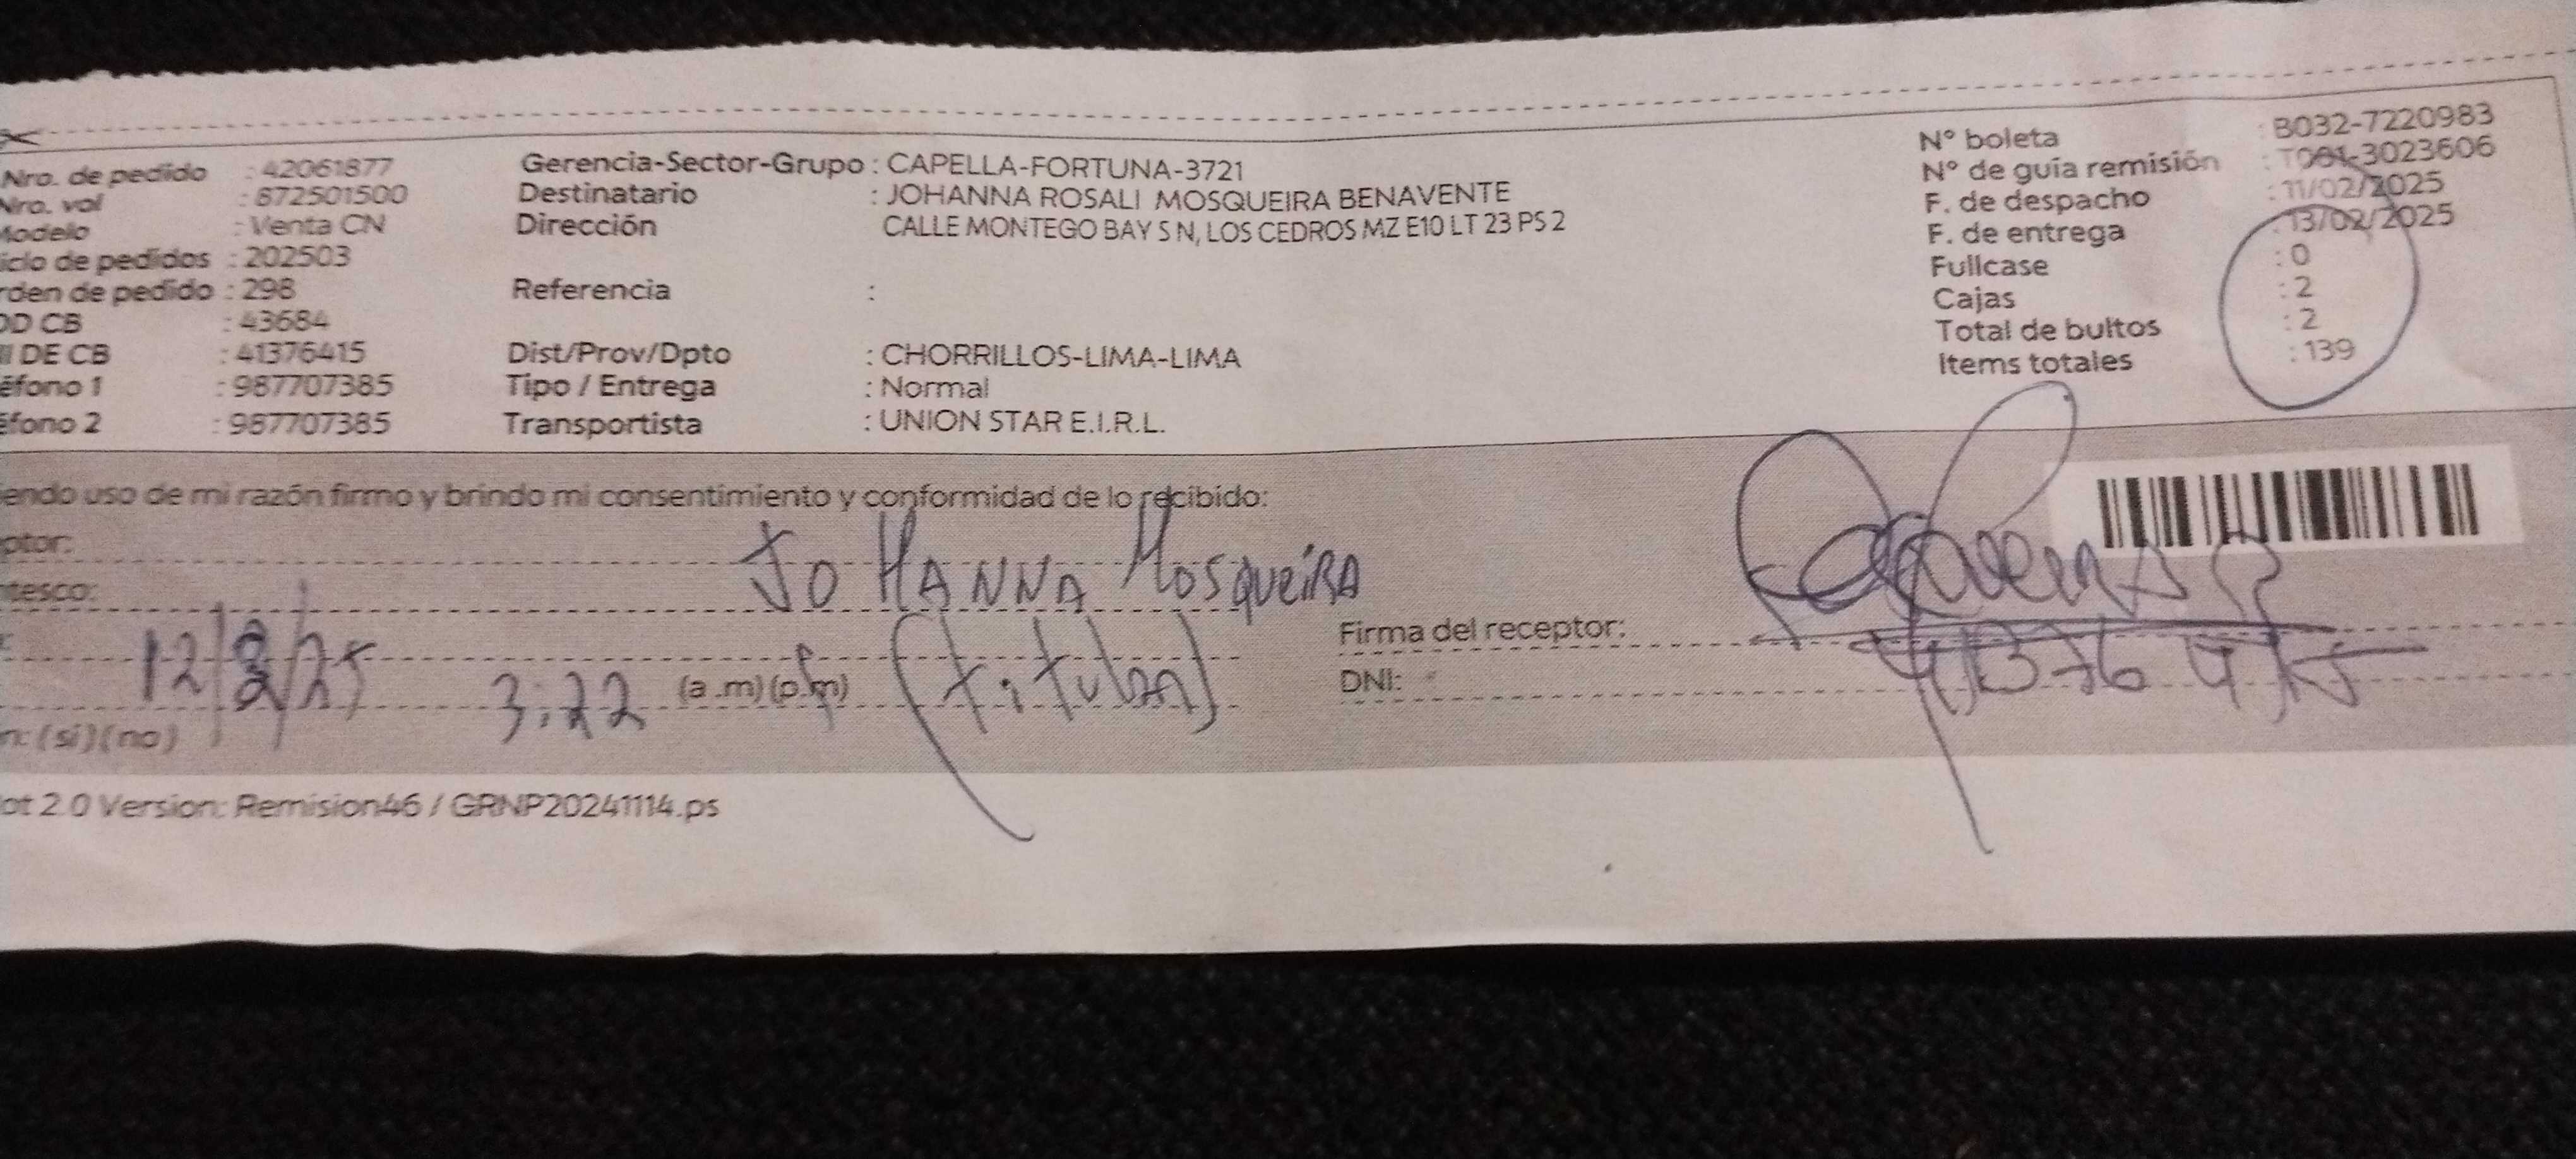 Nro. de pedido : 42061877 Gerencia-Sector-Grupo : CAPELLA-FORTUNA-3721 N° boleta : B032-7220983
Nro. vol : 872501500 Destinatario : JOHANNA ROSALI MOSQUEIRA BENAVENTE N° de guía remisión : T001-3023606
Modelo : Venta CN Dirección CALLE MONTEGO BAY S N, LOS CEDROS MZ E10 LT 23 PS 2 F. de despacho : 11/02/2025
iclo de pedidos : 202503 F. de entrega : 13/02/2025
rden de pedido : 298 Referencia : Fullcase : 0
OD CB : 43684 Cajas : 2
I DE CB : 41376415 Dist/Prov/Dpto : CHORRILLOS-LIMA-LIMA Total de bultos : 2
éfono 1 : 987707385 Tipo / Entrega : Normal Items totales : 139
éfono 2 : 987707385 Transportista : UNION STAR E.I.R.L.
iendo uso de mi razón firmo y brindo mi consentimiento y conformidad de lo recibido:
ptor: JOHANNA MOSQUEIRA
ntesco:
Firma del receptor:
3:22 (a.m)(p.m) (titular) DNI: 41376415
n: (si)(no)
ot 2.0 Version: Remision46 / GRNP20241114.ps